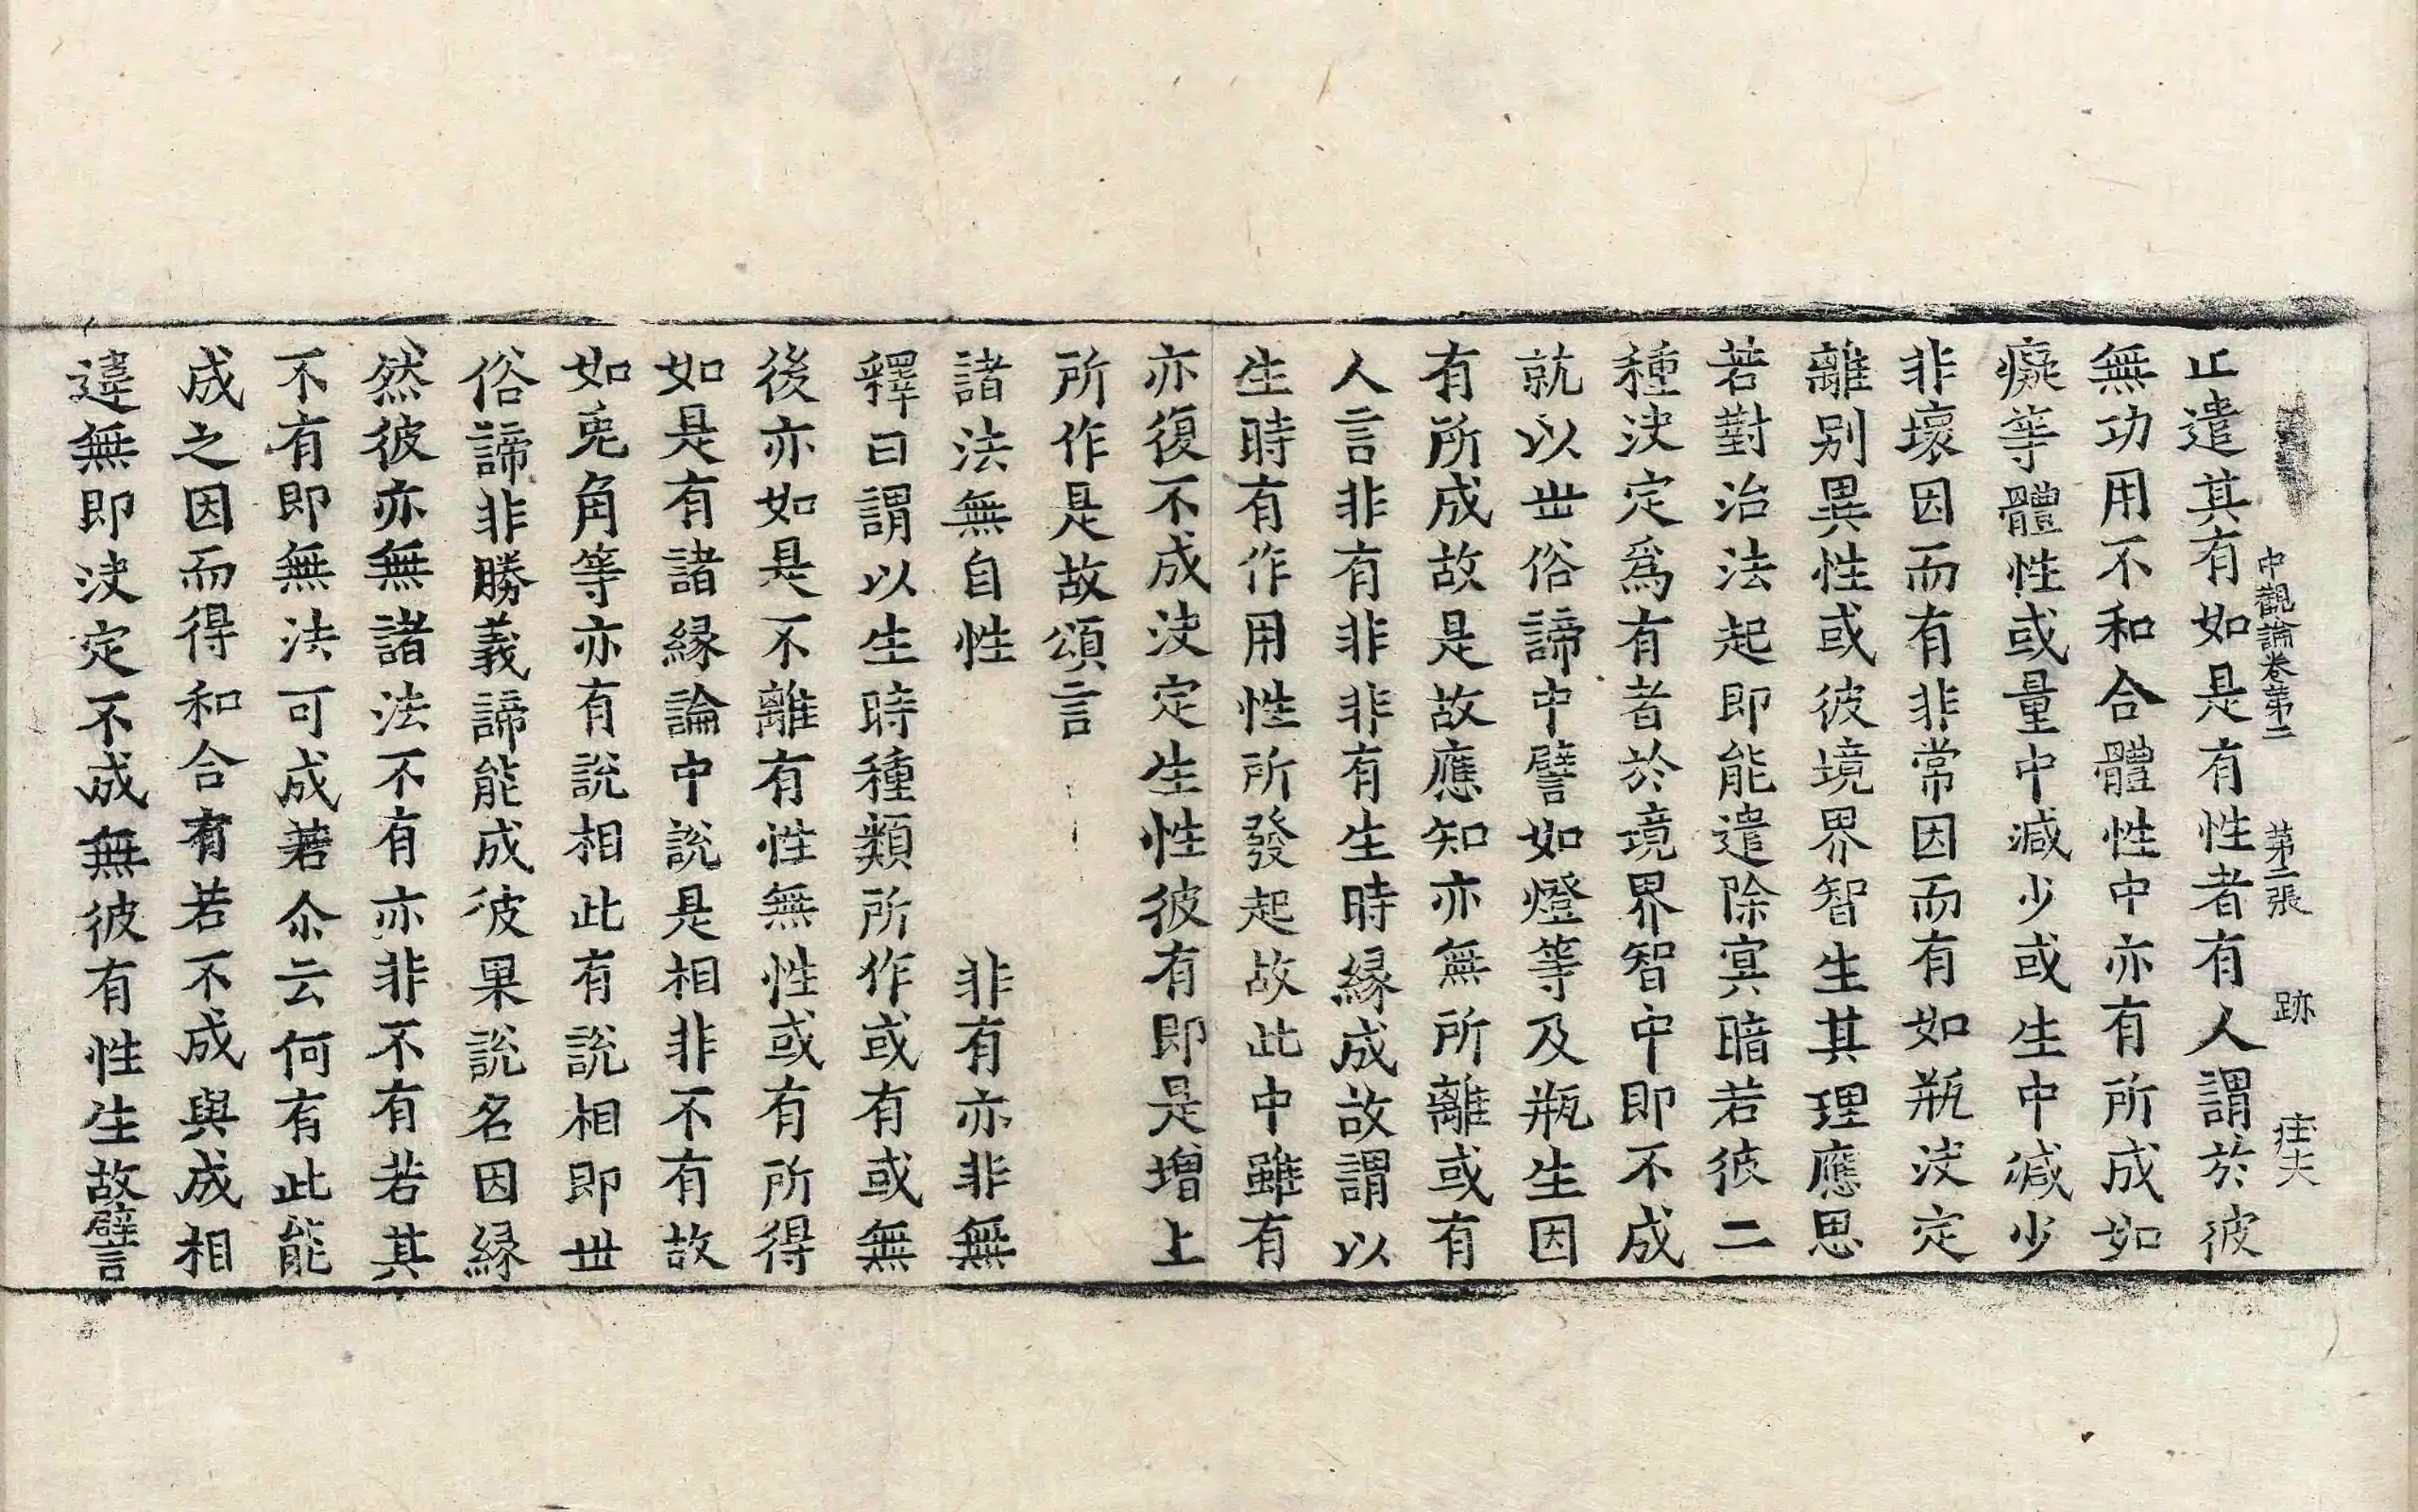 中觀論卷第二 第二張 跡
止遣其有如是有性者有人謂於彼
無功用不和合體性中亦有所成如
癡等體性或量中減少或生中減少
非壞因而有非常因而有如瓶決定
離别異性或彼境界智生其理應思
若對治法起即能遣除冥暗若彼二
種決定爲有者於境界智中即不成
就以世俗諦中譬如燈等及瓶生因
有所成故是故應知亦無所離或有
人言非有非非有生時縁成故謂以
生時有作用性所發起故此中雖有
亦復不成決定生性彼有即是增上
所作是故頌言
諸法無自性 非有亦非無
釋曰謂以生時種類所作或有或無
後亦如是不離有性無性或有所得
如是有諸縁論中說是相非不有故
如兎角等亦有說相此有說相即世
俗諦非勝義諦能成彼果說名因縁
然彼亦無諸法不有亦非不有若其
不有即無法可成若尒云何有此能
成之因而得和合有若不成與成相
違無即決定不成無彼有性生故譬